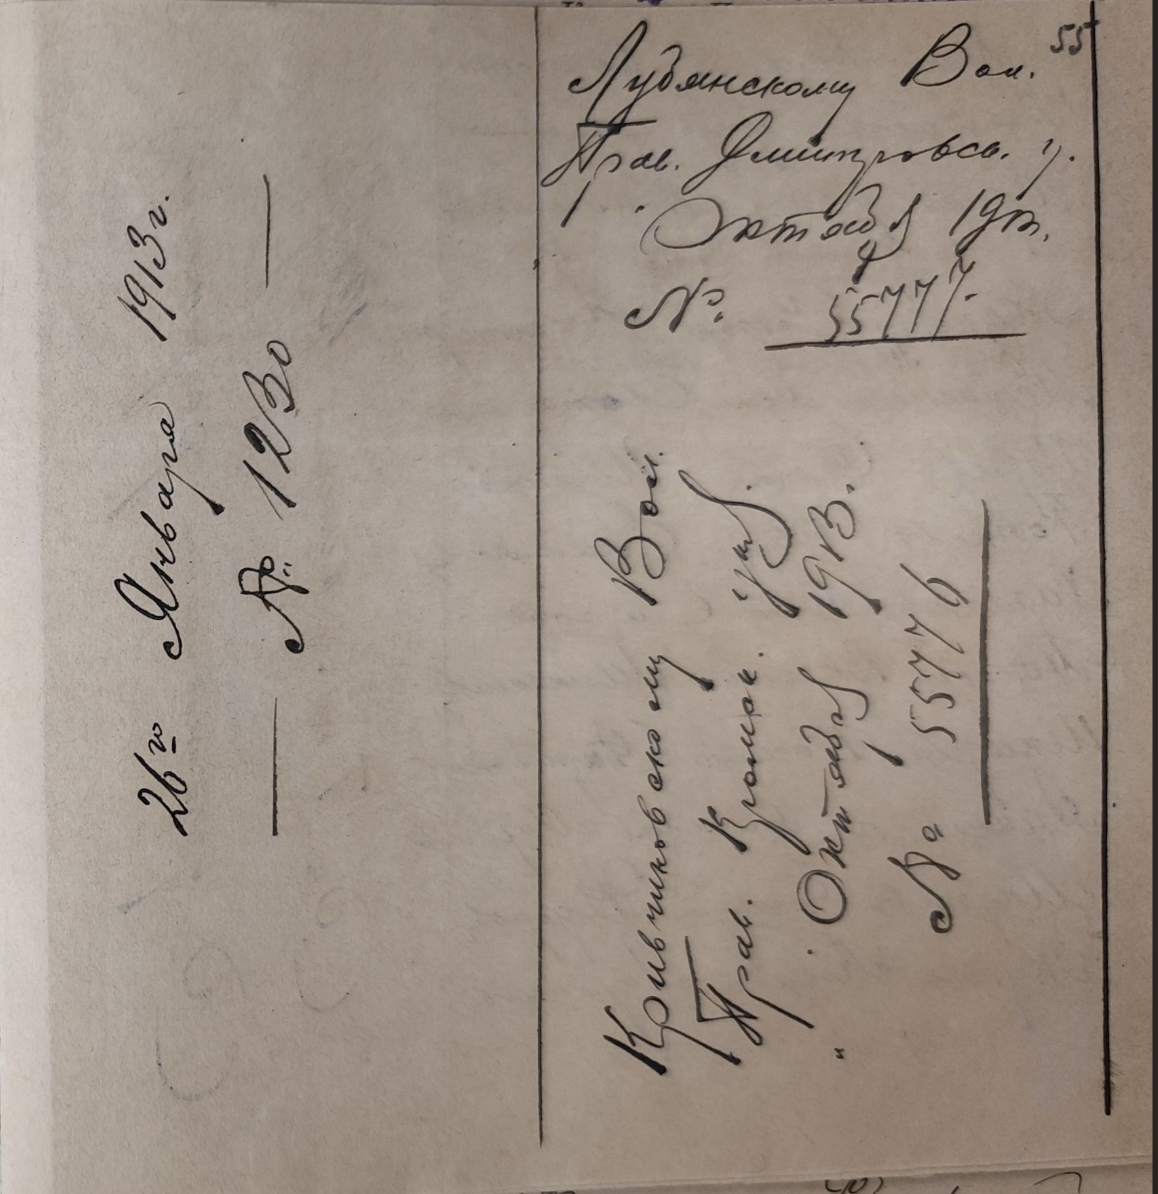 26го Января 1913г.
№ 1230
55
Лубянскому Вол.
Прав. Дмитровск. у.
Октября 191
№ 55777.
Кривчиковскому Вол.
Прав. Кромск. уѣз.
" Октября 1913.
№ 55776